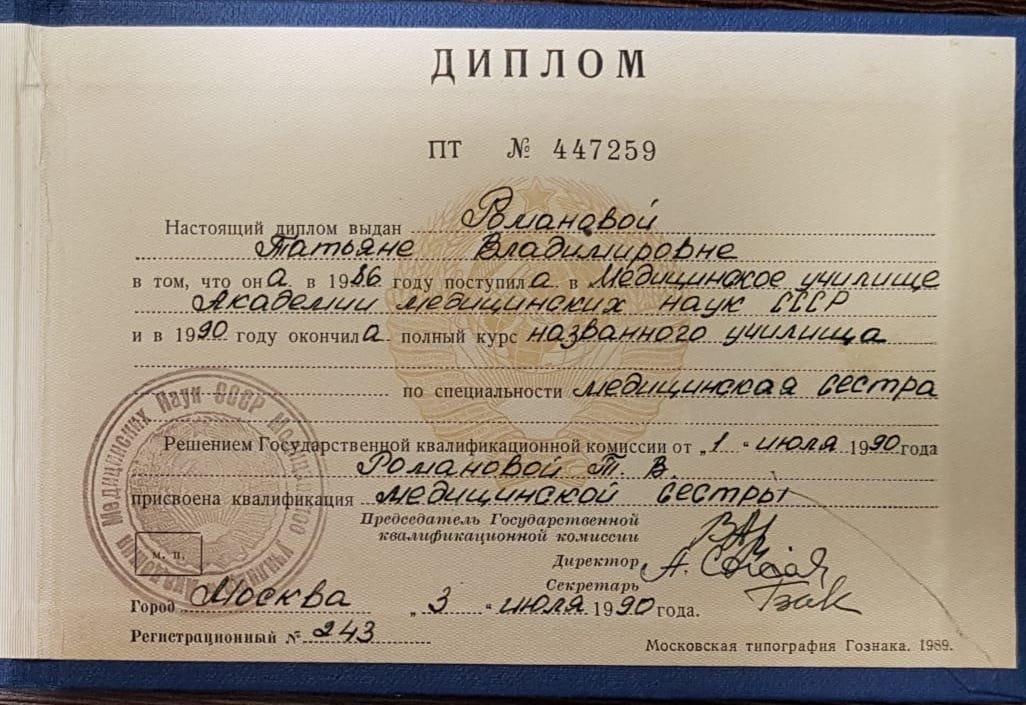 ДИПЛОМ
ПТ № 447259
Настоящий диплом выдан Романовой
Татьяне Владимировне
в том, что она в 1986 году поступила в Медицинское училище
Академии медицинских наук СССР
и в 1990 году окончила полный курс названного училища
по специальности медицинская сестра
Решением Государственной квалификационной комиссии от „1 “ июля 1990 года
Романовой Т. В.
присвоена квалификация медицинской сестры
Председатель Государственной
квалификационной комиссии
Директор
Секретарь
м. п.
Город Москва „ 3 “ июля 1990 года.
Регистрационный № 243
Московская типография Гознака. 1989.
Медицинских Наук СССР